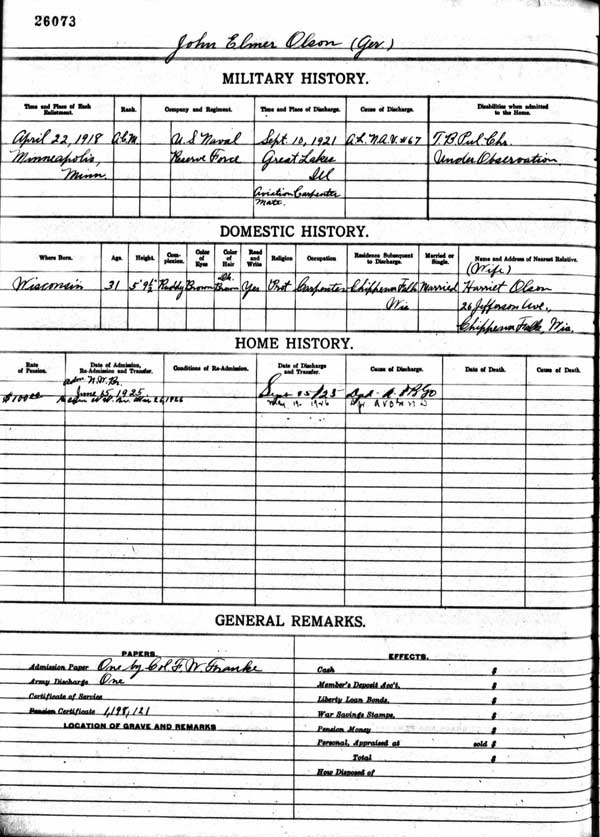 26073
John Elmer Olson (Ger.)
MILITARY HISTORY.
Time and Place of Each Enlistment. Rank. Company and Regiment. Time and Place of Discharge. Cause of Discharge. Disabilities when admitted to the Home.
April 22, 1918 A.C.M. U.S Naval Sept. 10, 1921 A.L.N.A.V. #67 T.B Pul Chr.
Minneapolis, Reserve Force Great Lakes Under Observation.
Minn. Ill
Aviation Carpenter
Mate.
DOMESTIC HISTORY.
Where Born. Age. Height. Complexion. Color of Eyes Color of Hair Read and Write Religion Occupation Residence Subsequent to Discharge. Married or Single. Name and Address of Nearest Relative.
(Wife)
Wisconsin 31 5' 9½" Ruddy Brown Dk. Brown Yes Prot Carpenter Chippewa Falls Married Harriet Olson
Wis 26 Jefferson Ave.,
Chippewa Falls, Wis.
HOME HISTORY.
Rate of Pension. Date of Admission, Re-Admission and Transfer. Conditions of Re-Admission. Date of Discharge and Transfer. Cause of Discharge. Date of Death. Cause of Death.
adm. N.W. Br.
$100.00 June 15, 1925 Sept 25/25
Mar 26, 1926 May 19 1926
GENERAL REMARKS.
PAPERS.
Admission Paper One by Col F. W. Franke
Army Discharge One
Certificate of Service
Pension Certificate 1,198,121
LOCATION OF GRAVE AND REMARKS
EFFECTS.
Cash $
Member's Deposit Acc't. $
Liberty Loan Bonds, $
War Savings Stamps, $
Pension Money $
Personal, Appraised at sold $
Total $
How Disposed of